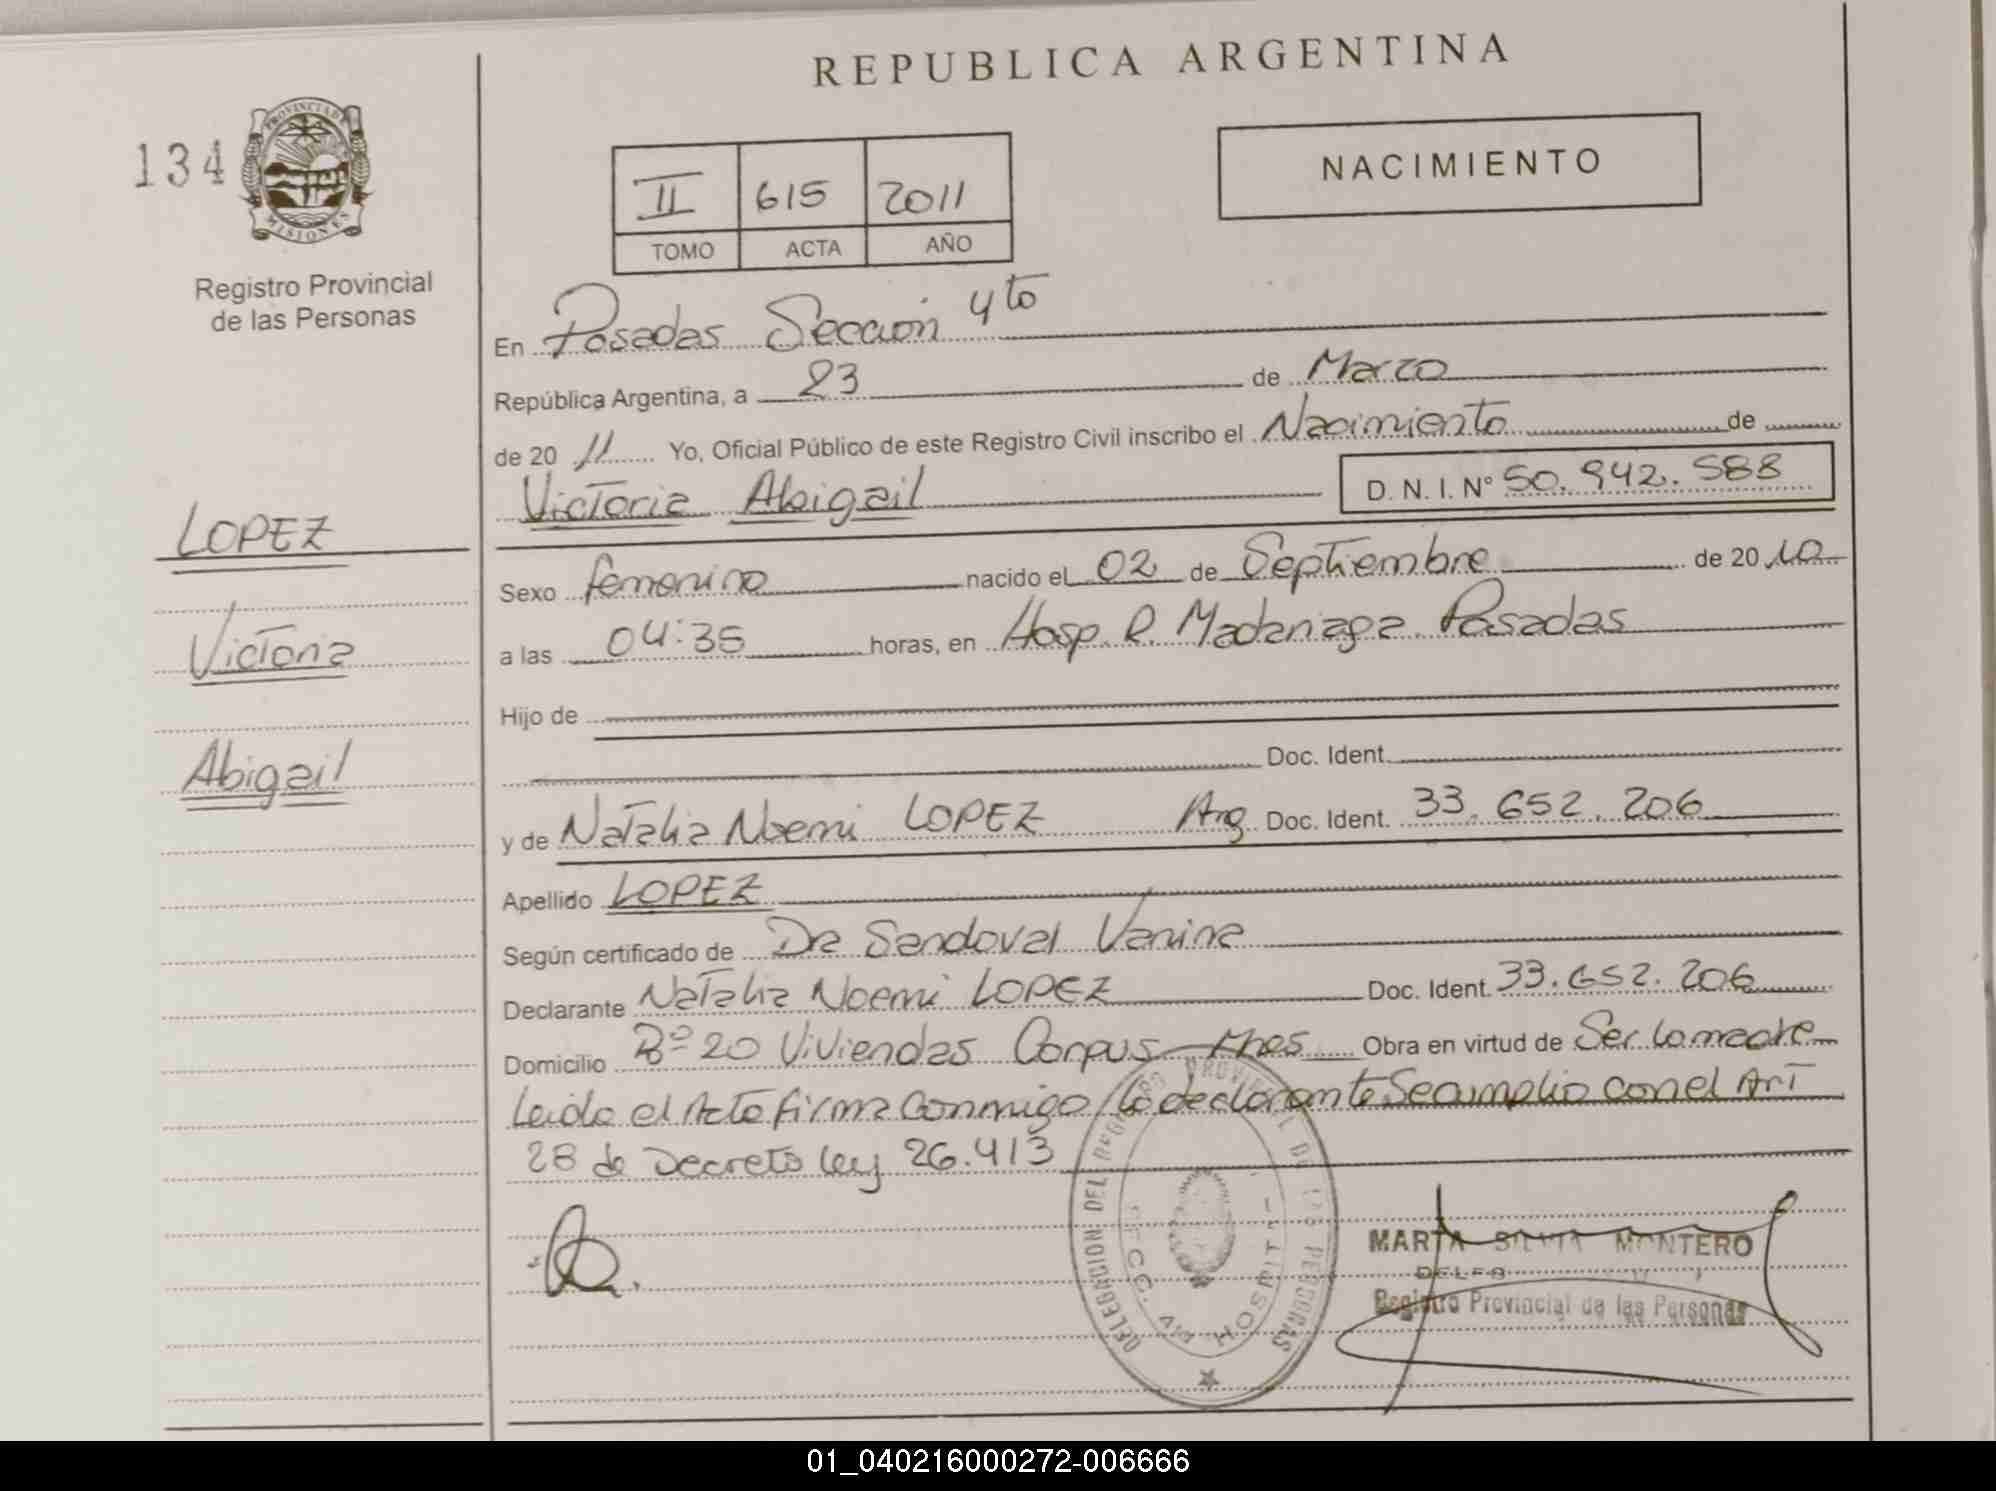 REPUBLICA ARGENTINA
134
PROVINCIA DE
MISIONES
Registro Provincial
de las Personas
II 615 2011
TOMO ACTA AÑO
NACIMIENTO
En Posadas Sección 4to
República Argentina, a 23 de Marzo
de 2011 Yo, Oficial Público de este Registro Civil inscribo el Nacimiento de
Victoria Abigail D. N. I. N° 50.942.588
LOPEZ
Victoria
Abigail
Sexo femenino nacido el 02 de Septiembre de 2010
a las 04:35 horas, en Hosp. R. Madariaga Posadas
Hijo de
Doc. Ident.
y de Natalia Noemi LOPEZ Arg Doc. Ident. 33.652.206
Apellido LOPEZ
Según certificado de Dra Sandoval Vanina
Declarante Natalia Noemi LOPEZ Doc. Ident. 33.652.206
Domicilio B° 20 Viviendas Corpus Mnes Obra en virtud de Ser la madre
Leida el Acta firma conmigo la declarante Se cumplio con el Art
28 de Decreto ley 26.413
DELEGACION DEL REGISTRO PROVINCIAL DE LAS PERSONAS
HOSPITAL
MARTA SILVIA MONTERO
Registro Provincial de las Personas
01_040216000272-006666